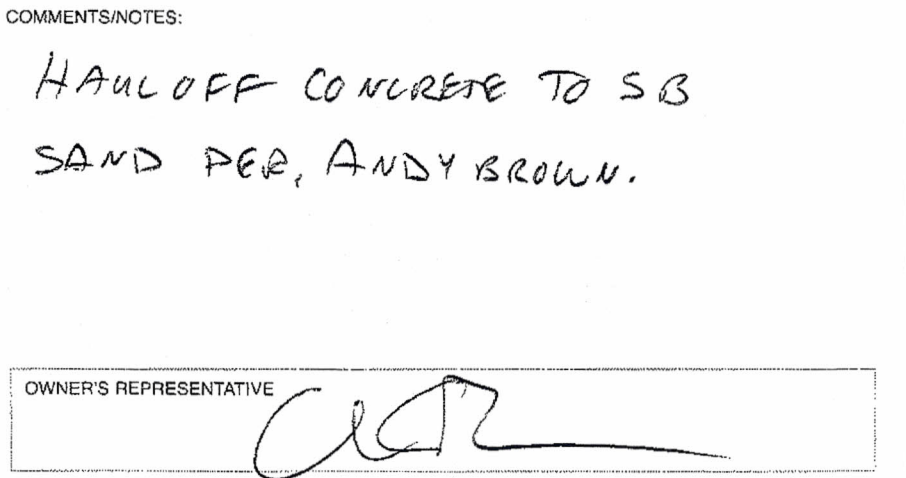 COMMENTS/NOTES:
HAUL OFF CONCRETE TO SB
SAND PER, ANDY BROWN.
OWNER'S REPRESENTATIVE